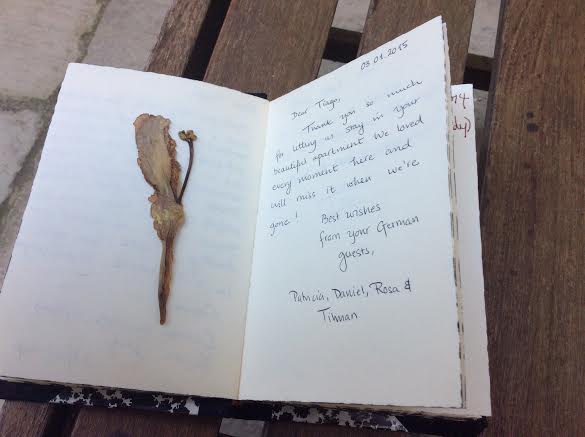 03.01.2015
Dear Tiago,
Thank you so much
for letting us stay in your
beautiful apartment. We loved
every moment here and
will miss it when we're
gone! Best wishes
from your German
guests,
Patricia, Daniel, Rosa &
Tilman